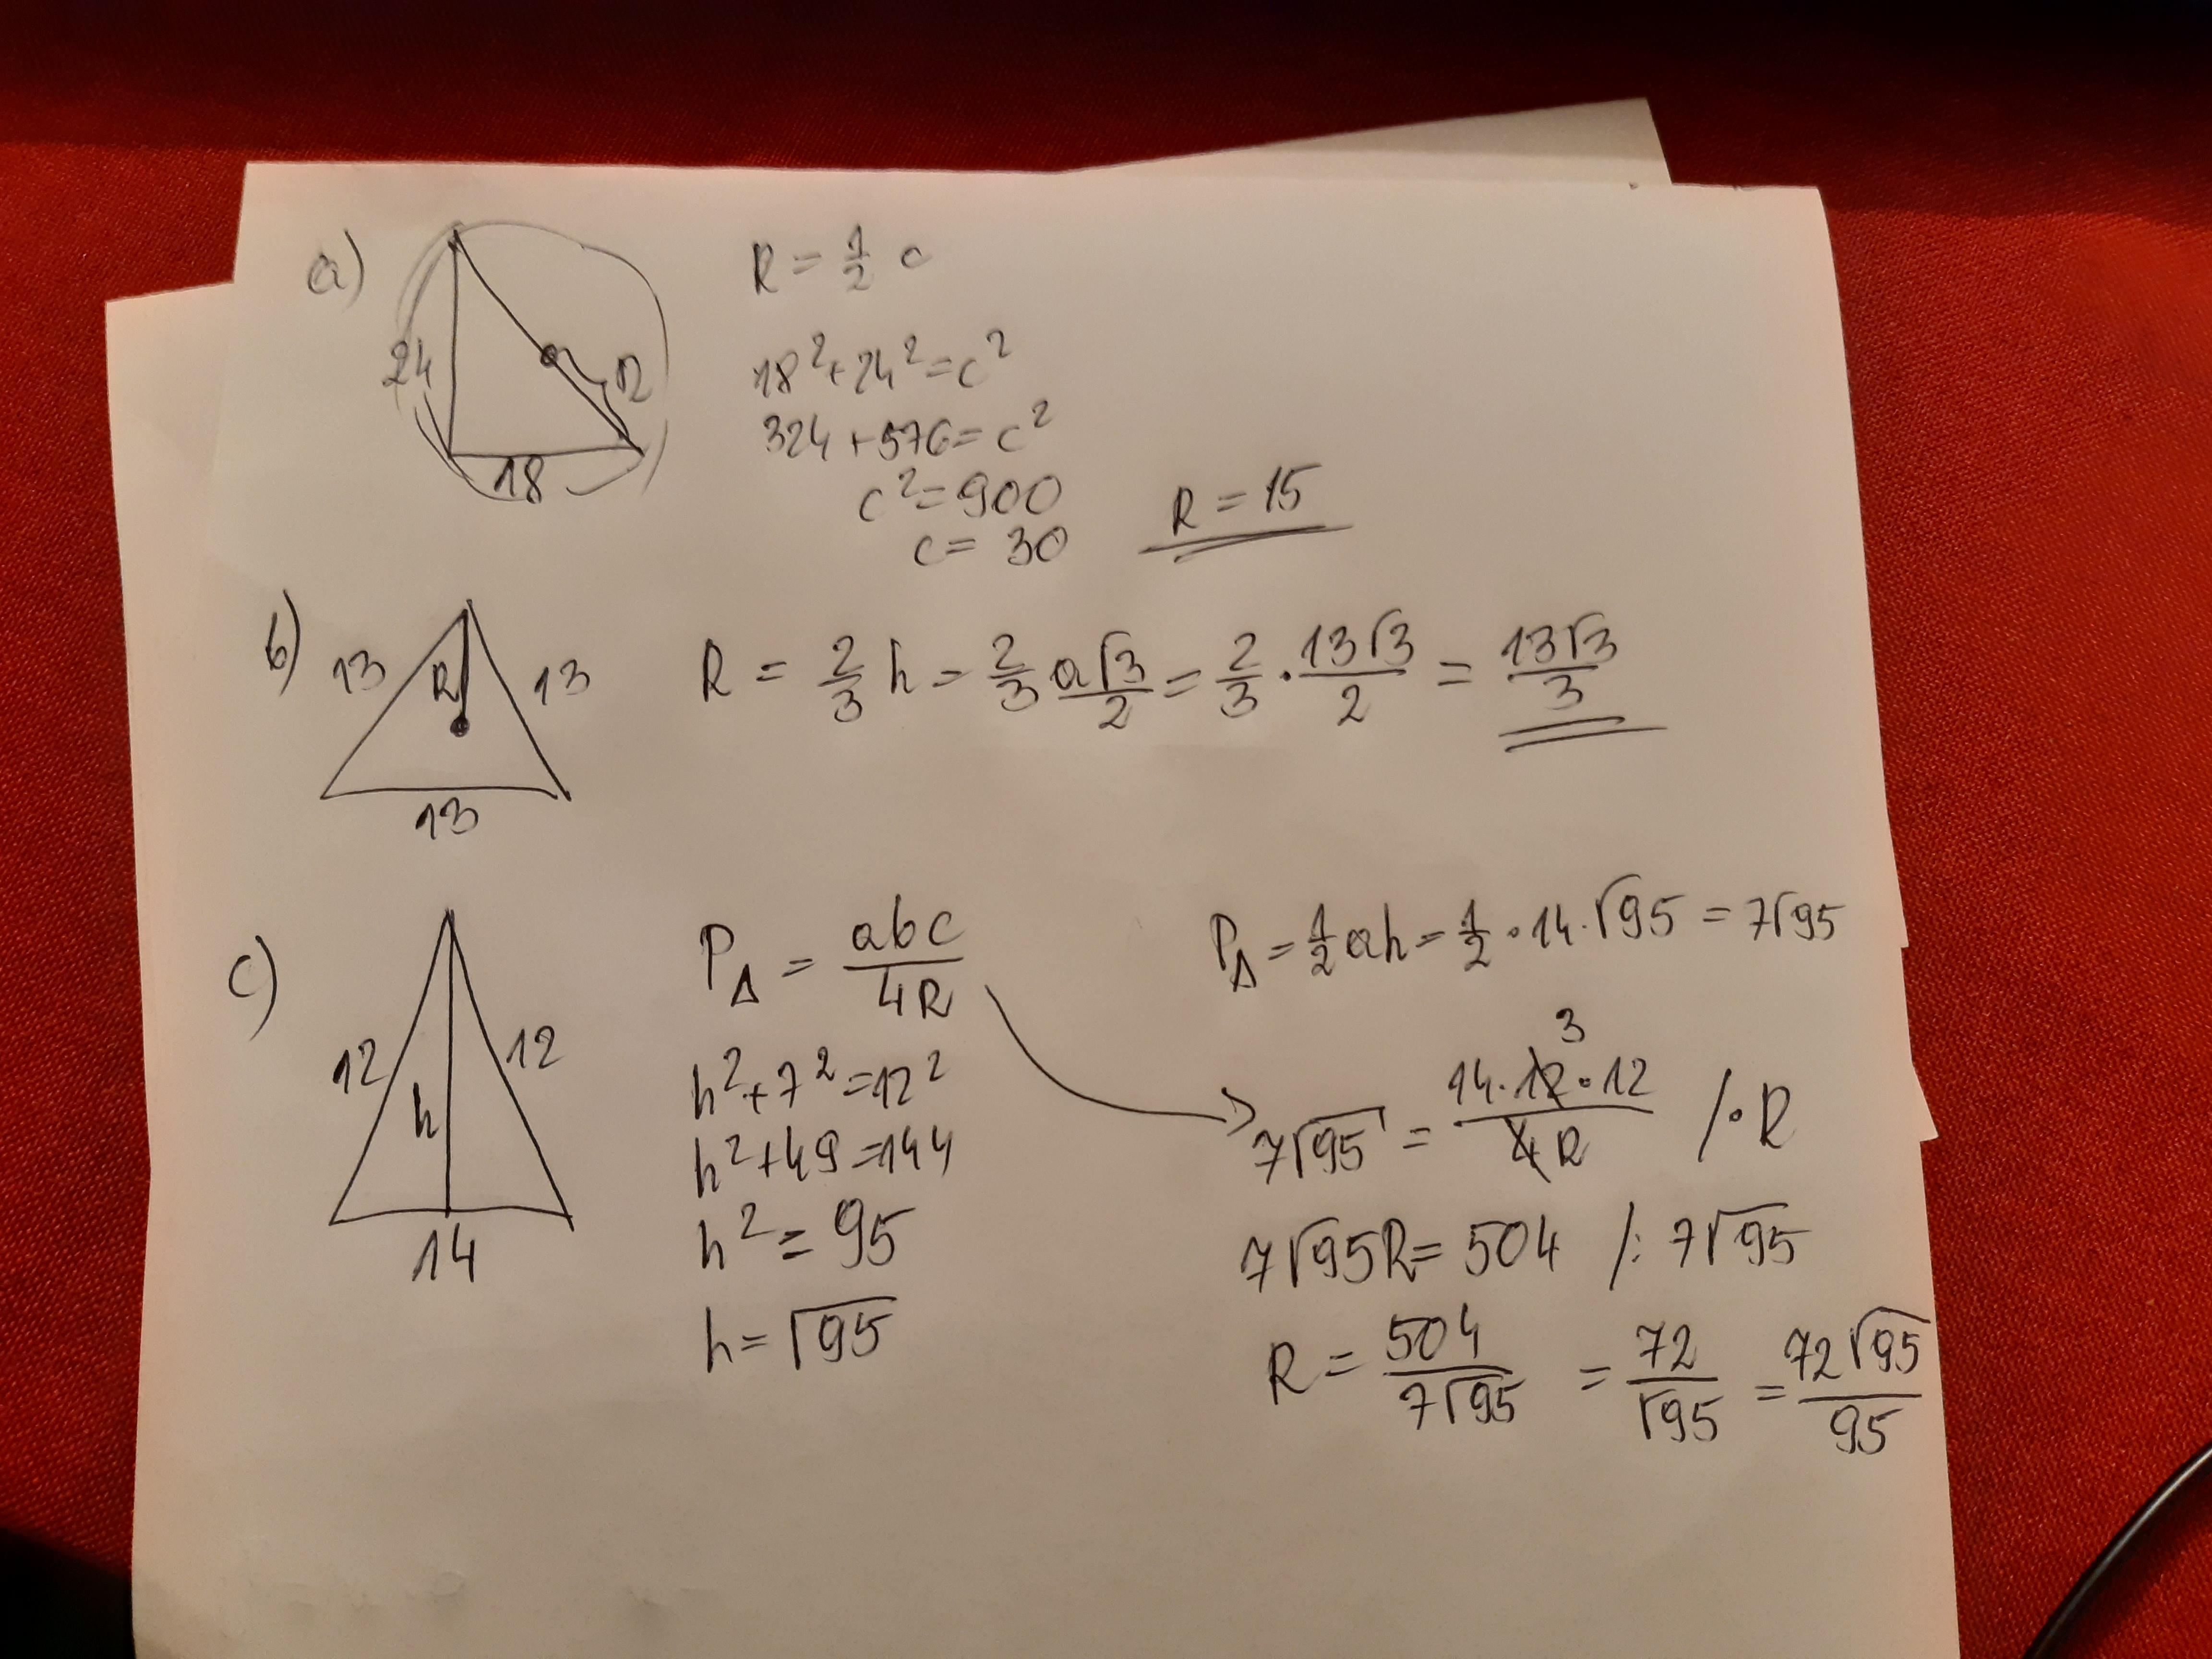 a)
24
R
18
R = 1/2 c
18² + 24² = c²
324 + 576 = c²
c² = 900
c = 30
R = 15
b)
13
R
13
13
R = 2/3 h = 2/3 a√3/2 = 2/3 · 13√3/2 = 13√3/3
c)
12
h
12
14
P△ = abc/4R
h² + 7² = 12²
h² + 49 = 144
h² = 95
h = √95
P△ = 1/2 ah = 1/2 · 14 · √95 = 7√95
3
7√95 = 14·12·12/4R /·R
7√95R = 504 /: 7√95
R = 504/7√95 = 72/√95 = 72√95/95